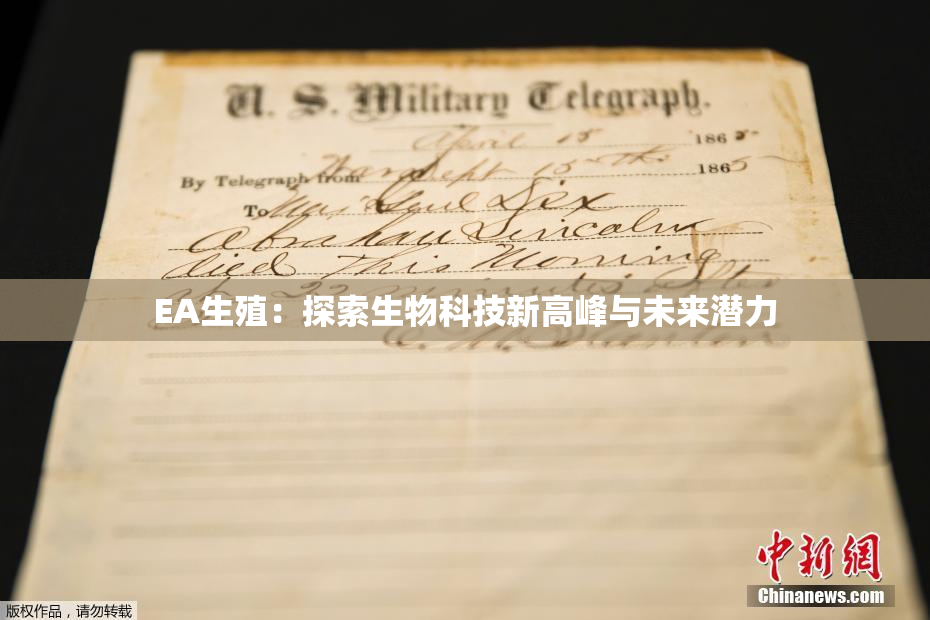 U. S. Military Telegraph.
April 15 1865
By Telegraph from War Dept 15th 1865
To Maj Genl Dix
Abraham Lincoln
died This Morning
at 22 minutes after
EA生殖：探索生物科技新高峰与未来潜力
E. M. Stanton
中新网
Chinanews.com
版权作品，请勿转载